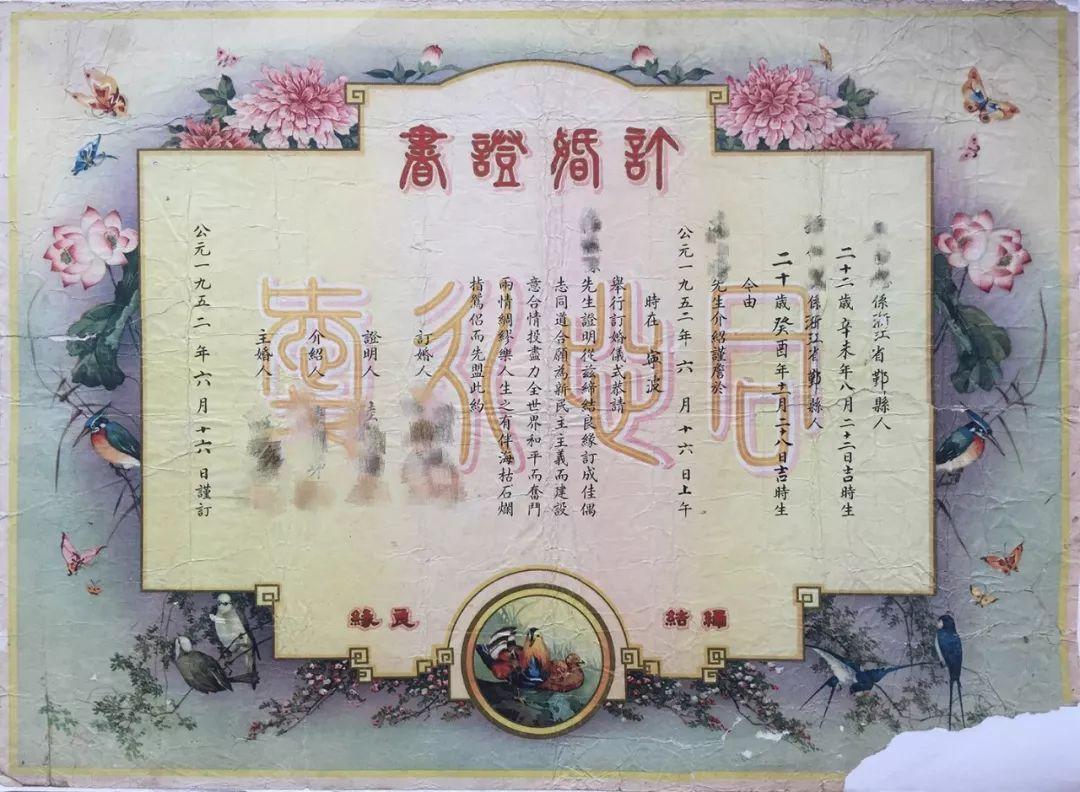 訂婚證書
係浙江省鄞縣人
二十二歲辛未年八月二十三日吉時生
係浙江省鄞縣人
二十歲癸酉年十一月二十八日吉時生
今由
先生介紹謹詹於
公元一九五二年六月十六日上午
時在寧波
舉行訂婚儀式恭請
先生證明從茲締結良緣訂成佳偶
志同道合願為新民主主義而建設
意合情投盡力全世界和平而奮鬥
兩情綢繆樂人生之有伴海枯石爛
指鴛侶而先盟此約
訂婚人
證明人
介紹人
主婚人
公元一九五二年六月十六日謹訂
締結
良緣